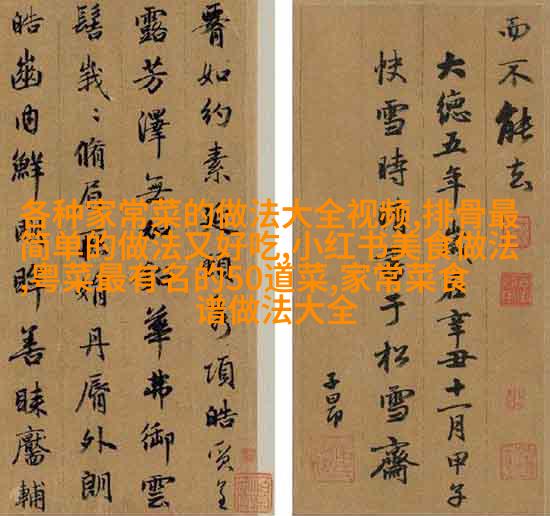 而不能去
大德五年歲在辛丑十一月甲子
快雪時晴于松雪齋
子昂
如約素延項皓質呈
露芳澤無華弗御雲
髻峩〻脩眉娟丹脣外朗
皓齒内鮮明眸善睞靨輔
各种家常菜的做法大全视频,排骨最
简单的做法又好吃,小红书美食做法
,粤菜最有名的50道菜,家常菜食
谱做法大全